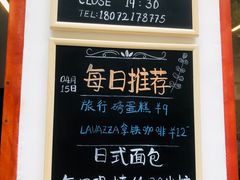 CLOSE 19:30
TEL:18072178775
04月
15日
每日推荐
旅行磅蛋糕¥9
LAVAZZA拿铁咖啡¥12
日式面包